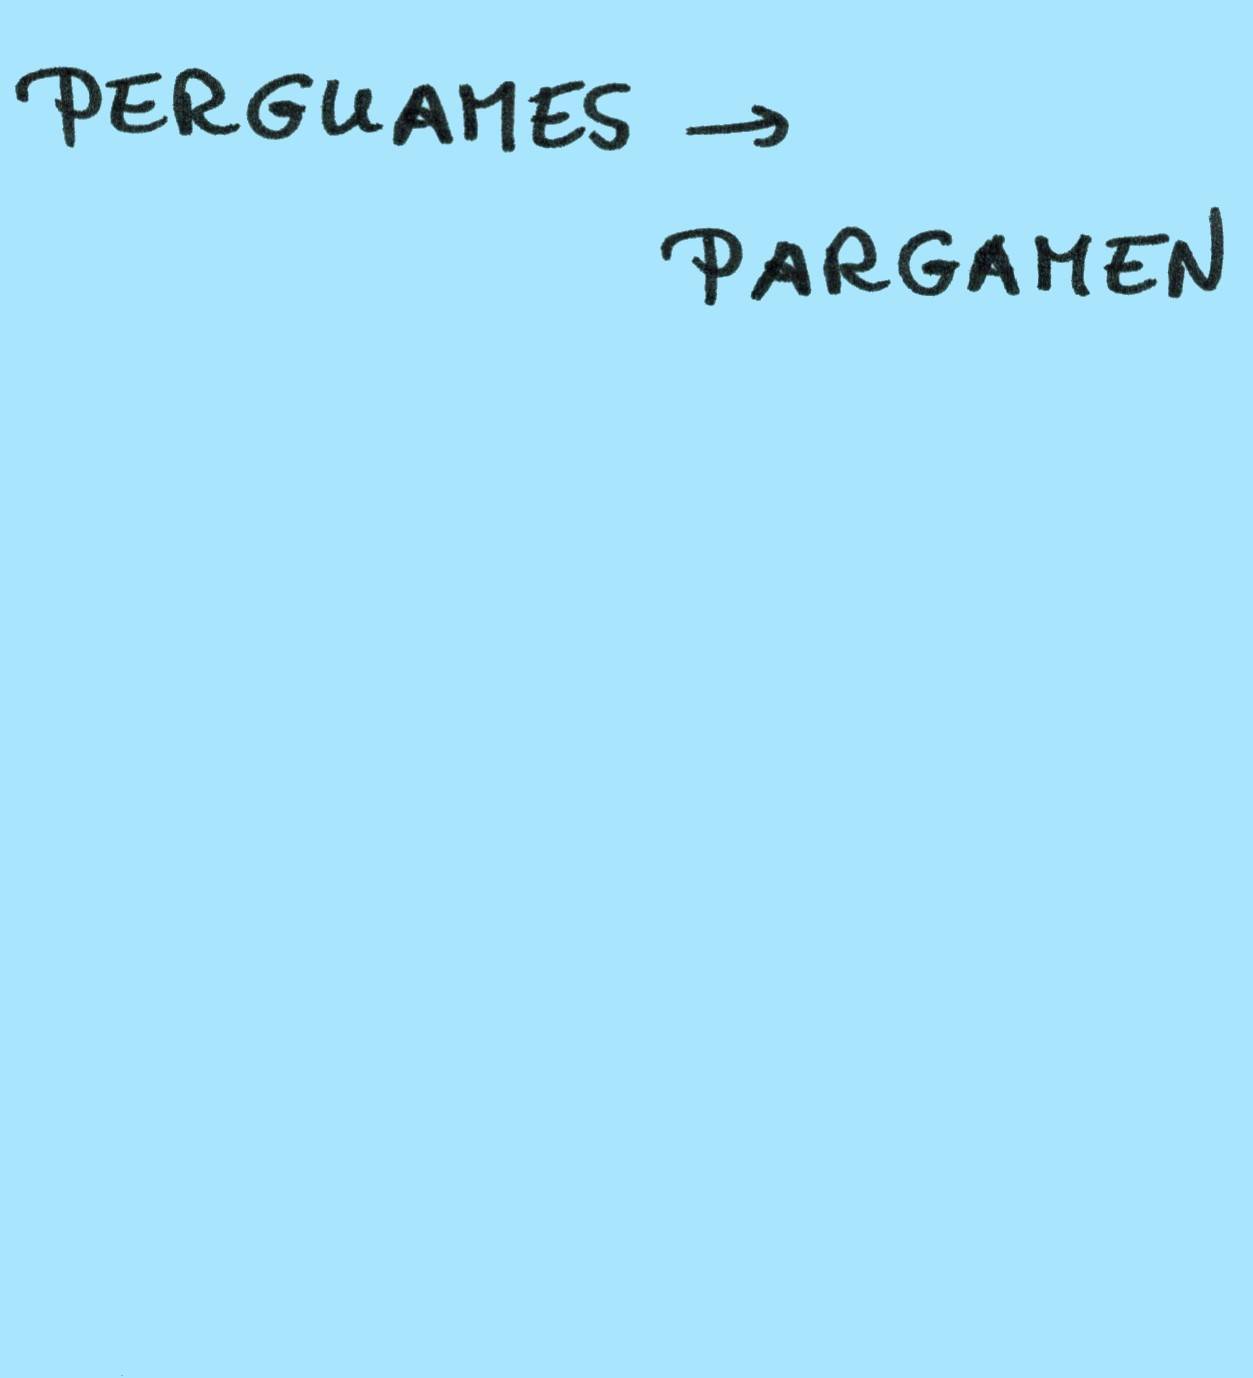 PERGUAMES →
PARGAMEN